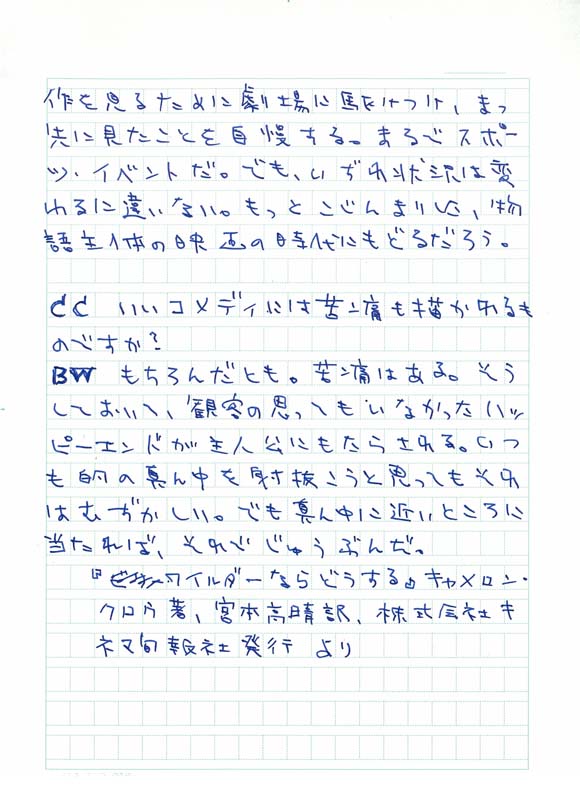 作を見るために劇場に駆けつけ、まっ
先に見たことを自慢する。まるでスポー
ツ・イベントだ。でも、いずれ状況は変
わるに違いない。もっとこじんまりした、物
語主体の映画の時代にもどるだろう。
CC いいコメディには苦痛も描かれるも
のですか?
BW もちろんだとも。苦痛はある。そう
しておいて、観客の思ってもいなかったハッ
ピーエンドが主人公にもたらされる。いつ
も的の真ん中を射抜こうと思ってもそれ
はむずかしい。でも真ん中に近いところに
当たれば、それでじゅうぶんだ。
『ワイルダーならどうする』キャメロン・
クロウ著、宮本高晴訳、株式会社キ
ネマ旬報社発行 より